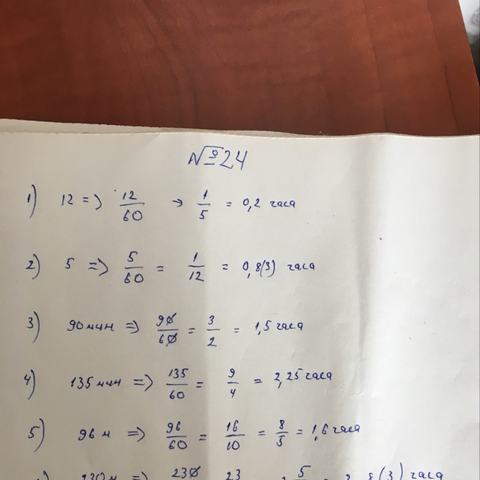 №24
1) 12 => 12/60 → 1/5 = 0,2 часа
2) 5 => 5/60 = 1/12 = 0,8(3) часа
3) 90 мин => 90/60 = 3/2 = 1,5 часа
4) 135 мин => 135/60 = 9/4 = 2,25 часа
5) 96 м => 96/60 = 16/10 = 8/5 = 1,6 часа
230 м => 230 23 5 8(3) часа